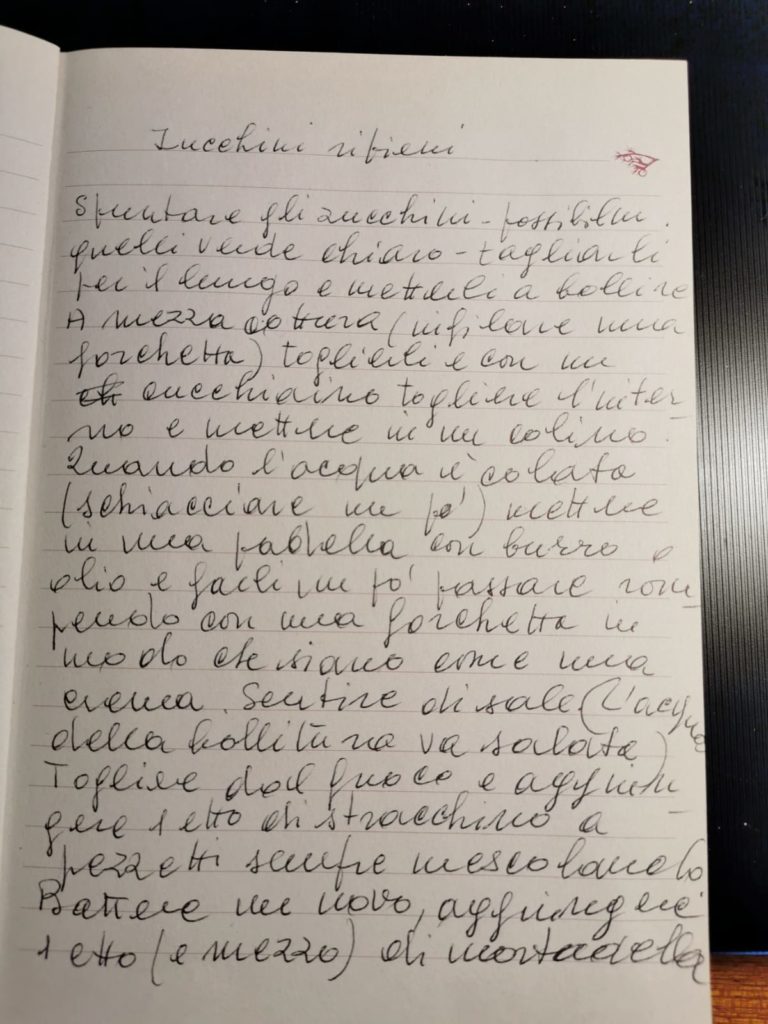 Zucchini ripieni
Spuntare gli zucchini - possibilm.
quelli verde chiaro - tagliarli
per il lungo e metterli a bollire
A mezza cottura (infilare una
forchetta) toglierli e con un
cucchiaino togliere l'inter-
no e metterne in un colino.
Quando l'acqua è colata
(schiacciare un po') metterne
in una padella con burro e
olio e farli un po' passare rom
pendo con una forchetta in
modo che siano come una
crema. Sentire di sale (L'acqua
della bollitura va salata)
Togliere dal fuoco e aggiun
gere 1 etto di stracchino a
pezzetti sempre mescolando
Battere un uovo, aggiungere
1 etto (e mezzo) di mortadella